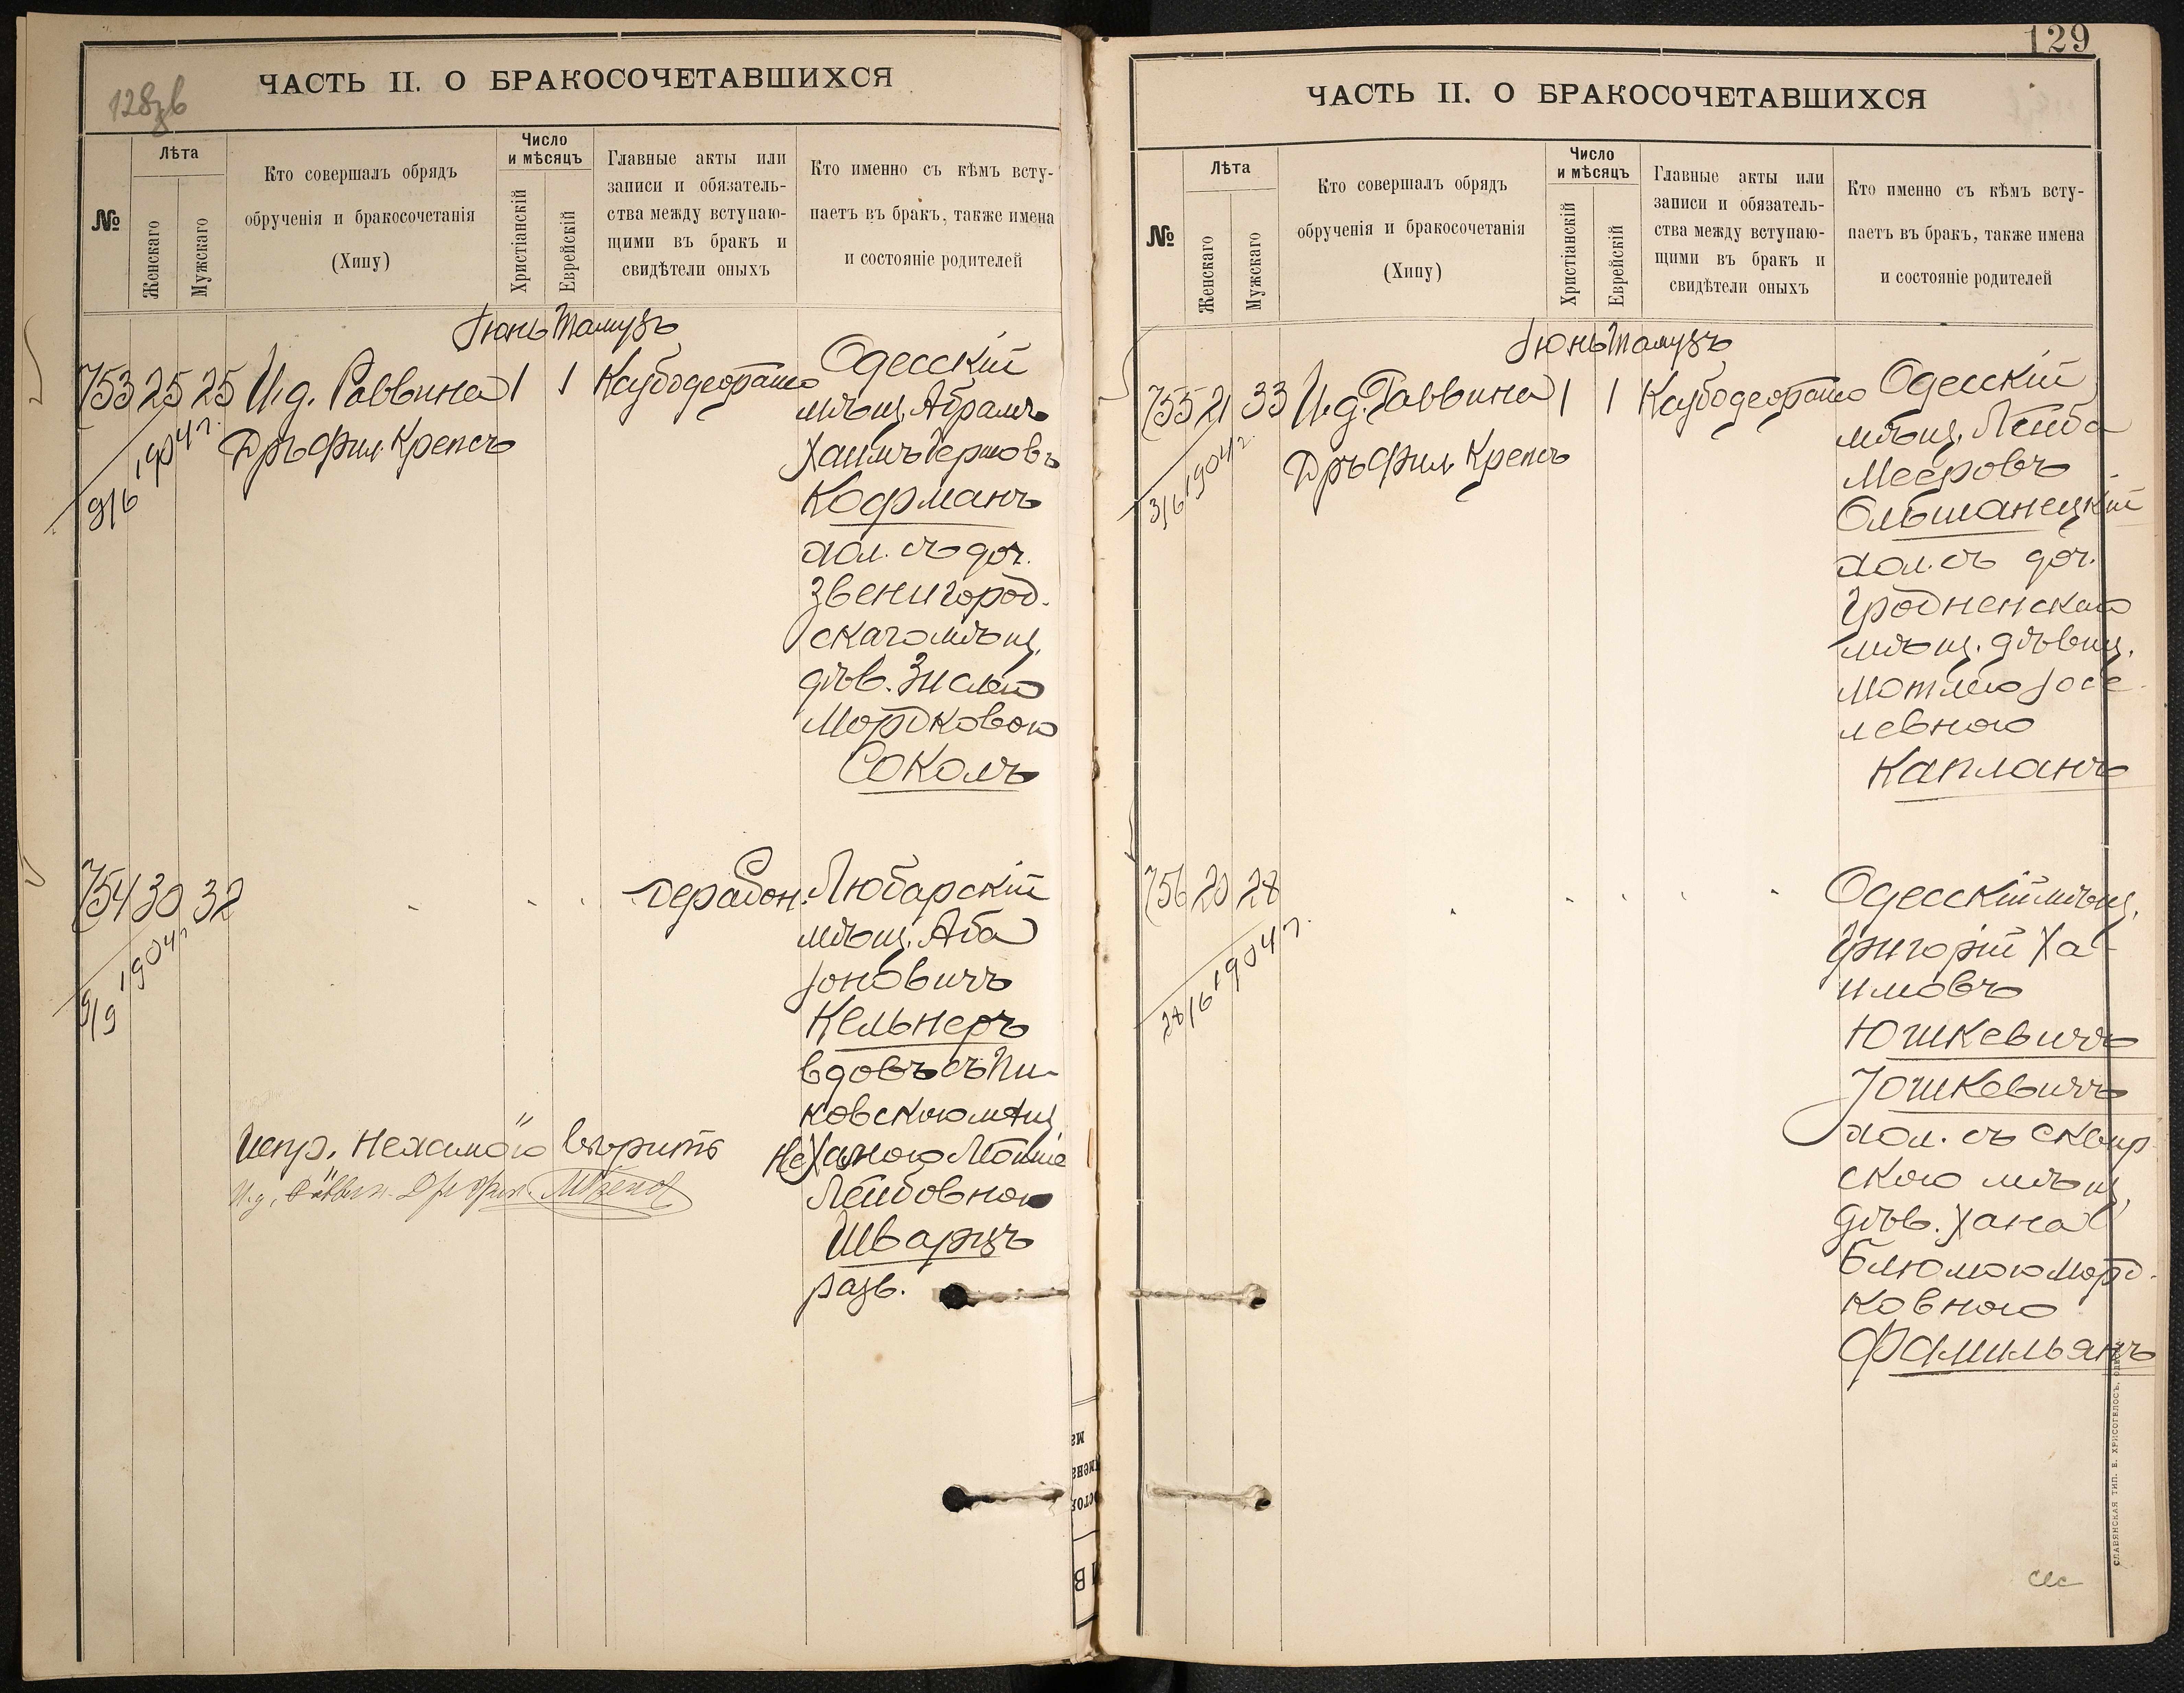 128зв
ЧАСТЬ II. О БРАКОСОЧЕТАВШИХСЯ
№
Лѣта
Женскаго
Мужскаго
Кто совершалъ обрядъ
обрученія и бракосочетанія
(Хипу)
Число
и мѣсяцъ
Христіанскій
Еврейскій
Главные акты или
записи и обязатель-
ства между вступаю-
щими въ бракъ и
свидѣтели оныхъ
Кто именно съ кѣмъ всту-
паетъ въ бракъ, также имена
и состояніе родителей
Іюнь Тамузъ
753 25 25 И.д. Раввина 1 1
Дръ Фил. Крепсъ
9/6 1904 г.
Одесскій
мѣщ. Абрамъ
Хаимъ Гершовъ
Кофманъ
хол. съ доч.
Звенигород-
скаго мѣщ.
дѣв. Зислею
Мордковою
Соколъ
754 30 32
9/9 1904 г.
Любарскій
мѣщ. Аба
Іоновичъ
Кельнеръ
вдовъ съ Пи-
ковскою мѣщ.
Лейбовною
Шварцъ
разв.
Испр. Нехамою вѣрить
И.д. Раввин. Др Фил. МКрепсъ
129
ЧАСТЬ II. О БРАКОСОЧЕТАВШИХСЯ
№
Лѣта
Женскаго
Мужскаго
Кто совершалъ обрядъ
обрученія и бракосочетанія
(Хипу)
Число
и мѣсяцъ
Христіанскій
Еврейскій
Главные акты или
записи и обязатель-
ства между вступаю-
щими въ бракъ и
свидѣтели оныхъ
Кто именно съ кѣмъ всту-
паетъ въ бракъ, также имена
и состояніе родителей
Іюнь Тамузъ
755 21 33 И.д. Раввина 1 1
Дръ Фил. Крепсъ
3/6 1904 г.
Одесскій
мѣщ. Лейба
Мееровъ
Ольшанецкій
хол. съ доч.
Гродненскаго
мѣщ. дѣвиц.
Мотлею Іосе-
левною
Капланъ
756 20 28
28/6 1904 г.
Одесскій мѣщ.
Григорій Ха-
имовъ
Юшкевичъ
Іошкевичъ
хол. съ сквир-
скою мѣщ.
дѣв. Хана
Блюмою Морд-
ковною
Фамильянъ
СЛАВЯНСКАЯ ТИП. Е. ХРИСОГЕЛОСЪ, ОДЕССА